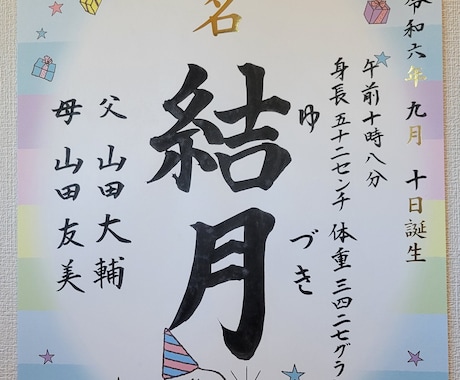 令和六年 九月 十日誕生
午前十時八分
身長五十二センチ 体重三四二七グラ
名
結月
ゆづき
父 山田大輔
母 山田友美